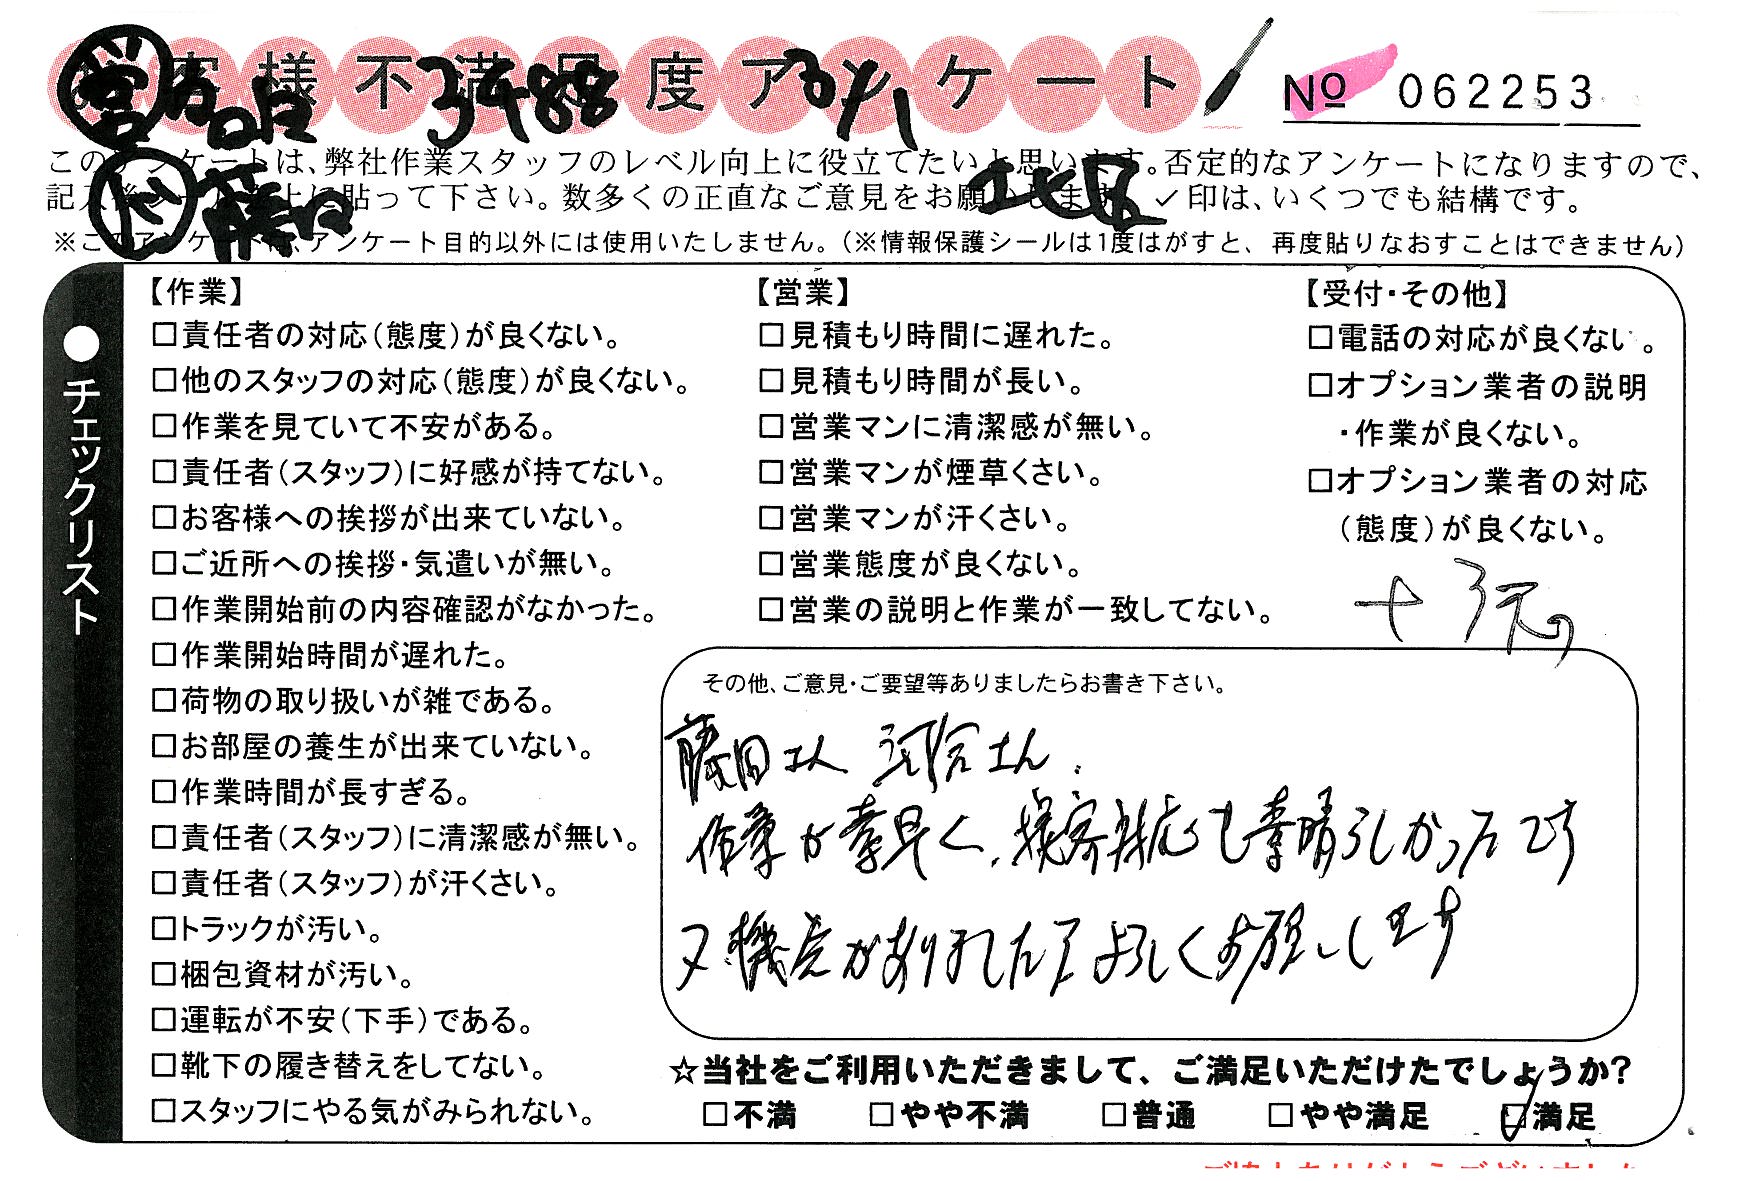 お客様不満足度アンケート
3488
3/1
No 062253
このアンケートは、弊社作業スタッフのレベル向上に役立てたいと思います。否定的なアンケートになりますので、
記入後シールを上に貼って下さい。数多くの正直なご意見をお願いします。✓印は、いくつでも結構です。
※このアンケートは、アンケート目的以外には使用いたしません。(※情報保護シールは1度はがすと、再度貼りなおすことはできません)
●チェックリスト
【作業】
□責任者の対応(態度)が良くない。
□他のスタッフの対応(態度)が良くない。
□作業を見ていて不安がある。
□責任者(スタッフ)に好感が持てない。
□お客様への挨拶が出来ていない。
□ご近所への挨拶・気遣いが無い。
□作業開始前の内容確認がなかった。
□作業開始時間が遅れた。
□荷物の取り扱いが雑である。
□お部屋の養生が出来ていない。
□作業時間が長すぎる。
□責任者(スタッフ)に清潔感が無い。
□責任者(スタッフ)が汗くさい。
□トラックが汚い。
□梱包資材が汚い。
□運転が不安(下手)である。
□靴下の履き替えをしてない。
□スタッフにやる気がみられない。
【営業】
□見積もり時間に遅れた。
□見積もり時間が長い。
□営業マンに清潔感が無い。
□営業マンが煙草くさい。
□営業マンが汗くさい。
□営業態度が良くない。
□営業の説明と作業が一致してない。
【受付・その他】
□電話の対応が良くない。
□オプション業者の説明
・作業が良くない。
□オプション業者の対応
(態度)が良くない。
その他、ご意見・ご要望等ありましたらお書き下さい。
藤田さん 河合さん
作業が素早く、接客対応も素晴らしかったです
又機会がありましたらよろしくお願いします
☆当社をご利用いただきまして、ご満足いただけたでしょうか?
□不満 □やや不満 □普通 □やや満足 ☑満足